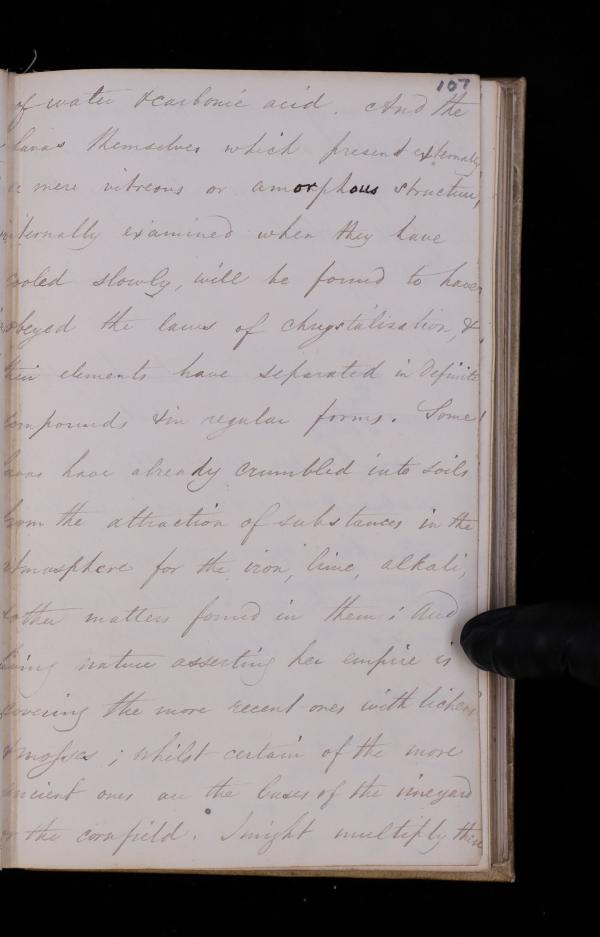 107
of water & carbonic acid. And the
lavas themselves which present externally
a mere vitreous or amorphous structure,
internally examined when they have
cooled slowly, will be found to have
obeyed the laws of chrystalisation, &
their elements have separated in Definite
compounds & in regular forms. Some
lavas have already crumbled into soils
from the attraction of substances in the
atmosphere for the iron, lime, alkali,
& other matters found in them; And
living nature asserting her empire is
covering the more recent ones with lichens
& mosses; whilst certain of the more
ancient ones are the bases of the vineyard
or the cornfield. I might multiply these